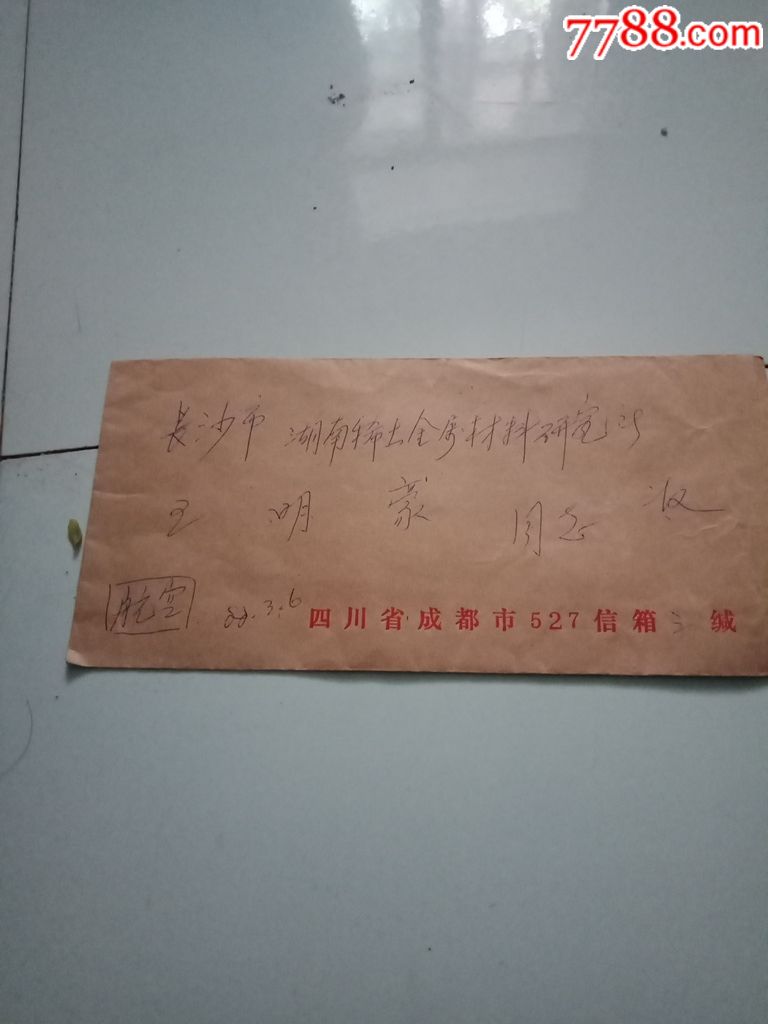 7788.com
长沙市 湖南稀土金属材料研究所
王明豪 同志 收
航空 88.3.6 四川省成都市527信箱 缄